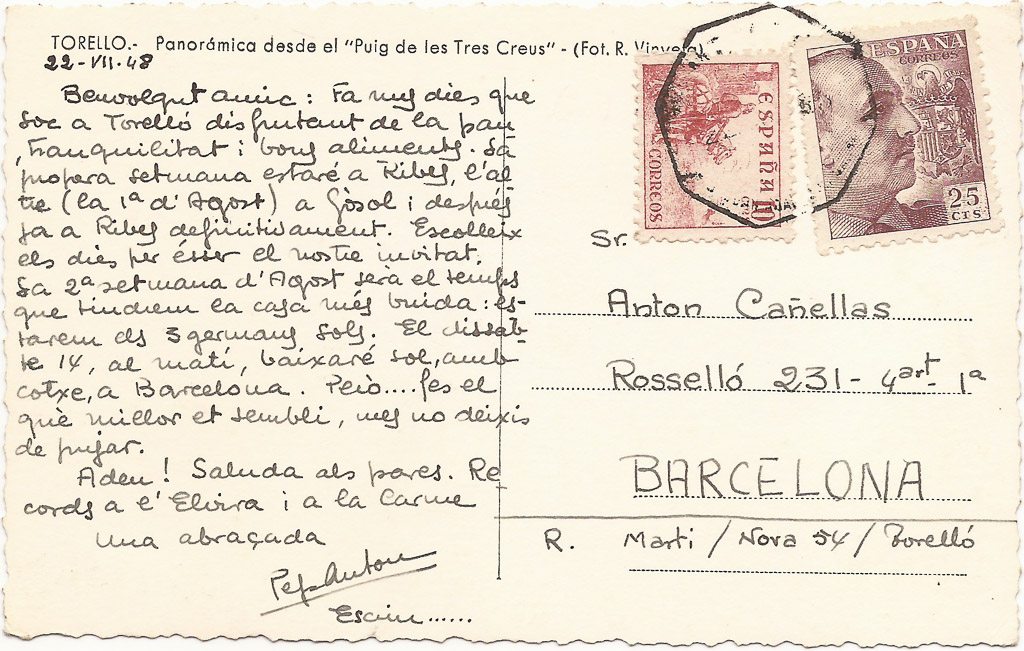 TORELLO.- Panorámica desde el "Puig de les Tres Creus" - (Fot. R. Vinyeta)
22-VII-48
Benvolgut amic: Fa mes dies que
soc a Torelló disfrutant de la pau
, tranquilitat i bons aliments. La
propera setmana estaré a Ribes, l'al
tre (la 1ª d'Agost) a Gòsol i després
ja a Ribes definitivament. Escolleix
els dies per ésser el nostre invitat.
La 2ª setmana d'Agost serà el temps
que tindrem la casa més buida: es-
tarem els 3 germans sols. El dissab-
te 14, al matí, baixaré sol, amb
cotxe, a Barcelona. Però.... fes el
què millor et sembli, mes no deixis
de pujar.
Adeu! Saluda als pares. Re
cords a l'Elvira i a la Carme
Una abraçada
Pep Anton
Escriu......
ESPAÑA
CORREOS
10
ESPAÑA
CORREOS
25
CTS
Sr.
Anton Cañellas
Rosselló 231- 4art- 1ª
BARCELONA
R. Marti / Nova 54 / Torelló